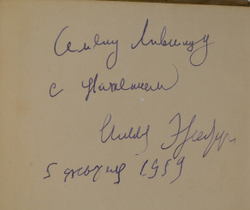 Семену Лившицу
с уважением
Илья Эренбург
5 1959